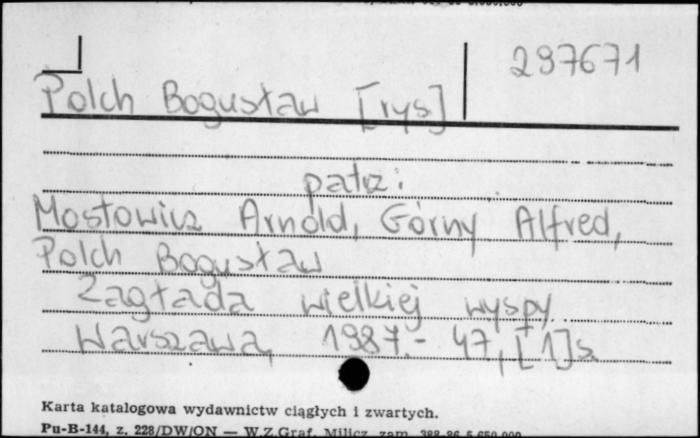 297671
Polch Bogusław [rys]
patrz:
Mostowicz Arnold, Górny Alfred,
Polch Bogusław
Zagłada wielkiej wyspy
Warszawa, 1987.- 47, [1]s.
Karta katalogowa wydawnictw ciągłych i zwartych.
Pu-B-144, z. 228/DW/ON — W.Z.Graf. Milicz, zam. 388-86 5.650.000